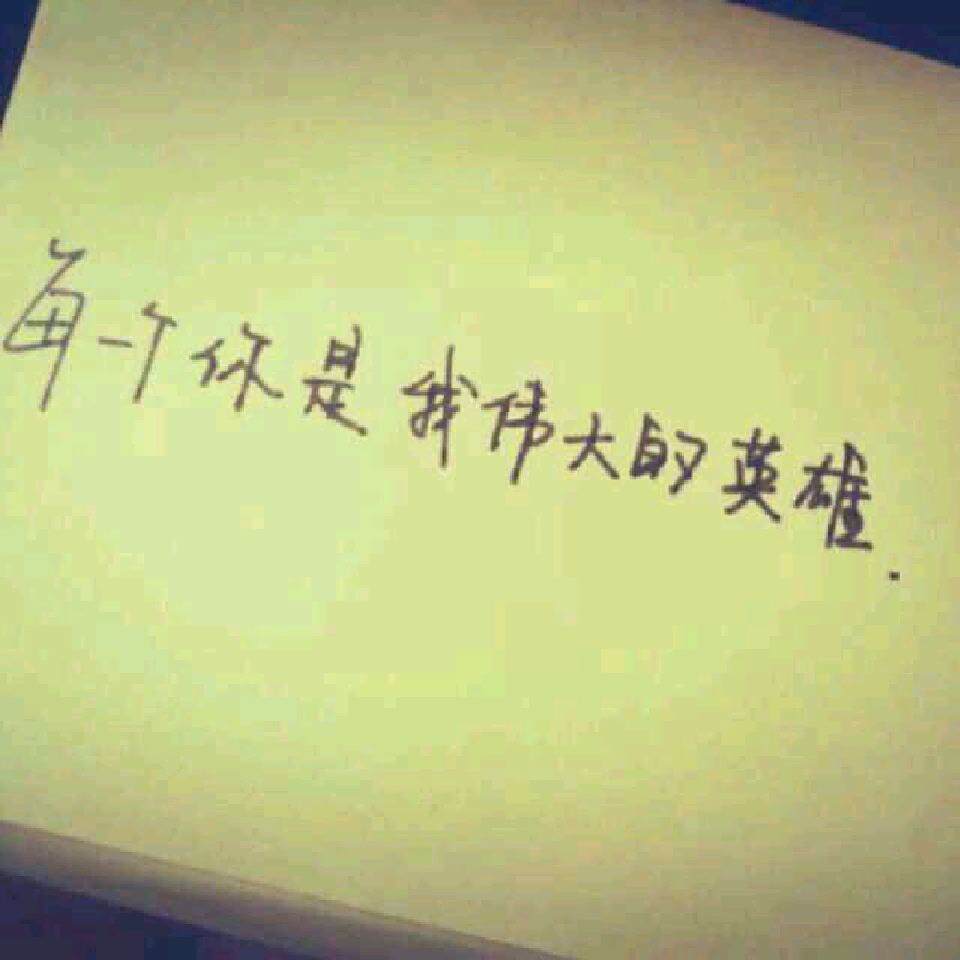 每一个你是我伟大的英雄.